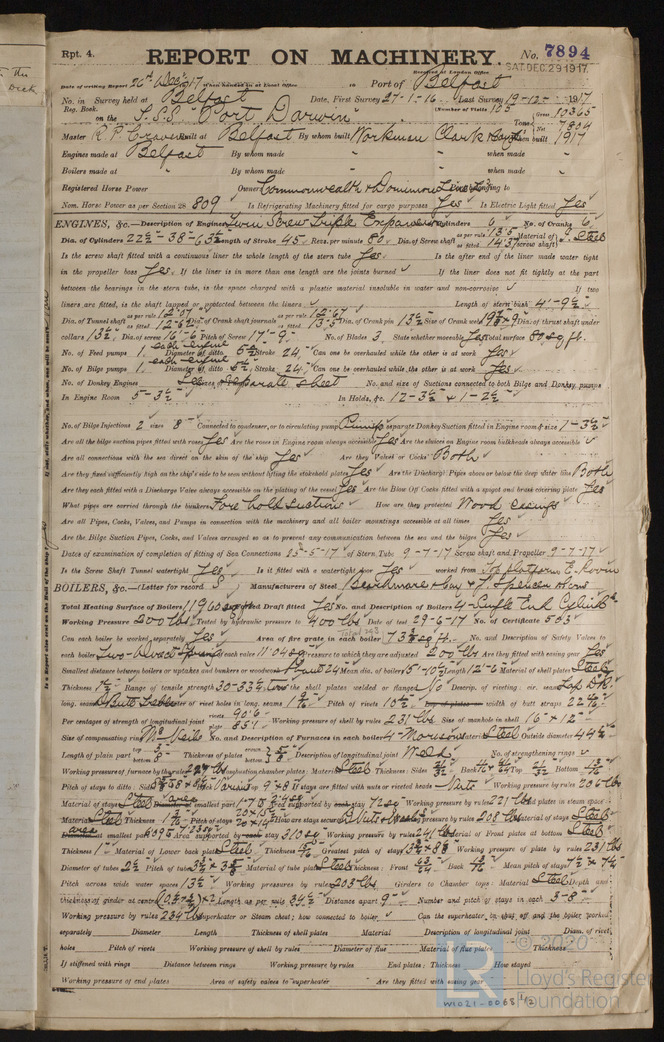 Rpt. 4.
REPORT ON MACHINERY. No. 7894
Received at London Office SAT. DEC. 29 1917
Date of writing Report 26th Dec 1917 When handed in at Local Office in Port of Belfast
No. in Survey held at Belfast Date, First Survey 27-1-16 Last Survey 19-12- 1917
Reg. Book. (Number of Visits 105
on the S.S.S. Port Darwin Tons Gross 10365 Net 7804
Master R. P. Craven Built at Belfast By whom built Workman Clark & Co Ltd When built 1917
Engines made at Belfast By whom made " when made "
Boilers made at " By whom made " when made "
Registered Horse Power Owners Commonwealth & Dominion Line Ltd belonging to
Nom. Horse Power as per Section 28 809 Is Refrigerating Machinery fitted for cargo purposes Yes Is Electric Light fitted Yes
ENGINES, &c.—Description of Engines Twin Screw Triple Expansion No. of Cylinders 6 No. of Cranks 6
Dia. of Cylinders 22½-38-63½ Length of Stroke 45 Revs. per minute 80 Dia. of Screw shaft as per rule 13.5 as fitted 14.37 Material of screw shaft Steel
Is the screw shaft fitted with a continuous liner the whole length of the stern tube Yes Is the after end of the liner made water tight
in the propeller boss Yes If the liner is in more than one length are the joints burned If the liner does not fit tightly at the part
between the bearings in the stern tube, is the space charged with a plastic material insoluble in water and non-corrosive If two
liners are fitted, is the shaft lapped or protected between the liners Length of stern bush 4'-9½"
Dia. of Tunnel shaft as per rule 12.07 Dia. of Crank shaft journals as per rule 12.67 as fitted 13.5 Dia. of Crank pin 13½ Size of Crank webs Dia. of thrust shaft under
collars 13½ Dia. of screw 16'-6 Pitch of Screw 17'-9 No. of Blades 3 State whether moveable Yes Total surface 80 sq ft.
No. of Feed pumps 1 each engine Diameter of ditto Stroke 24 Can one be overhauled while the other is at work Yes
No. of Bilge pumps 1 each engine Diameter of ditto Stroke 24 Can one be overhauled while the other is at work Yes
No. of Donkey Engines See separate sheet No. and size of Suctions connected to both Bilge and Donkey pumps
In Engine Room 5-3½ In Holds, &c. 12-3½ & 1-2½
No. of Bilge Injections 2 sizes 8" Connected to condenser, or to circulating pump Pumps Is a separate Donkey Suction fitted in Engine room & size 1-3½
Are all the bilge suction pipes fitted with roses Yes Are the roses in Engine room always accessible Yes Are the sluices on Engine room bulkheads always accessible
Are all connections with the sea direct on the skin of the ship Yes Are they Valves or Cocks Both
Are they fixed sufficiently high on the ship's side to be seen without lifting the stokehold plates Yes Are the Discharge Pipes above or below the deep water line Both
Are they each fitted with a Discharge Valve always accessible on the plating of the vessel Yes Are the Blow Off Cocks fitted with a spigot and brass covering plate Yes
What pipes are carried through the bunkers Fore hold suctions How are they protected Wood casings
Are all Pipes, Cocks, Valves, and Pumps in connection with the machinery and all boiler mountings accessible at all times Yes
Are the Bilge Suction Pipes, Cocks, and Valves arranged so as to prevent any communication between the sea and the bilges Yes
Dates of examination of completion of fitting of Sea Connections 25-5-17 of Stern Tube 9-7-17 Screw shaft and Propeller 9-7-17
Is the Screw Shaft Tunnel watertight Yes Is it fitted with a watertight door Yes worked from Top platform E. Room
BOILERS, &c.—(Letter for record S) Manufacturers of Steel Beardmore & Coy & J. Spencer & Sons
Total Heating Surface of Boilers 11960 sq ft Is Forced Draft fitted Yes No. and Description of Boilers 4-Single End Cylind.
Working Pressure 200 lbs Tested by hydraulic pressure to 400 lbs Date of test 29-6-17 No. of Certificate 563
Can each boiler be worked separately Yes Area of fire grate in each boiler 73½ sq ft. No. and Description of Safety Valves to
each boiler Two-Direct Springs Area of each valve 11.04 sq Pressure to which they are adjusted 200 lbs Are they fitted with easing gear Yes
Smallest distance between boilers or uptakes and bunkers or woodwork About 24 Mean dia. of boilers 15'-10½ Length 12'-6 Material of shell plates Steel
Thickness Range of tensile strength 30-33½ Tons Are the shell plates welded or flanged No Descrip. of riveting: cir. seams Lap D.R.
long. seams D Butt Treble Diameter of rivet holes in long. seams 1 9/16 Pitch of rivets 10½ Lap of plates or width of butt straps 22
Per centages of strength of longitudinal joint rivets 90.6 plate 85.1 Working pressure of shell by rules 231 lbs Size of manhole in shell 16" x 12"
Size of compensating ring McNeils No. and Description of Furnaces in each boiler 4-Morisons Material Steel Outside diameter 44¼
Length of plain part top bottom Thickness of plates crown bottom 5/8 Description of longitudinal joint Weld No. of strengthening rings
Working pressure of furnace by the rules lbs Combustion chamber plates: Material Steel Thickness: Sides 21/32 Back Top 21/32 Bottom 13/16
Pitch of stays to ditto: Sides Back Various Top 9 x 8 If stays are fitted with nuts or riveted heads Nuts Working pressure by rules 206 lbs
Material of stays Steel area smallest part Area supported by each stay 72 sq Working pressure by rules 221 lbs End plates in steam space
Material Steel Thickness Pitch of stays How are stays secured Working pressure by rules 208 lbs Material of stays Steel
area smallest part Area supported by each stay 310 sq Working pressure by rules 241 lbs Material of Front plates at bottom Steel
Thickness 1" Material of Lower back plate Steel Thickness Greatest pitch of stays Working pressure of plate by rules 231 lbs
Diameter of tubes 2½ Pitch of tubes Material of tube plates Steel Thickness: Front Back Mean pitch of stays
Pitch across wide water spaces 13½ Working pressures by rules 203 lbs Girders to Chamber tops: Material Steel Depth and
thickness of girder at centre Length as per rule 34½ Distance apart 9" Number and pitch of stays in each 3-8
Working pressure by rules 234 lbs Superheater or Steam chest; how connected to boiler Can the superheater be shut off and the boiler worked
separately Diameter Length Thickness of shell plates Material Description of longitudinal joint Diam. of rivet
holes Pitch of rivets Working pressure of shell by rules Diameter of flue Material of flue plates Thickness
If stiffened with rings Distance between rings Working pressure by rules End plates: Thickness How stayed
Working pressure of end plates Area of safety valves to superheater Are they fitted with easing gear
© 2020
Lloyd's Register
Foundation
W1021-0068 1/2